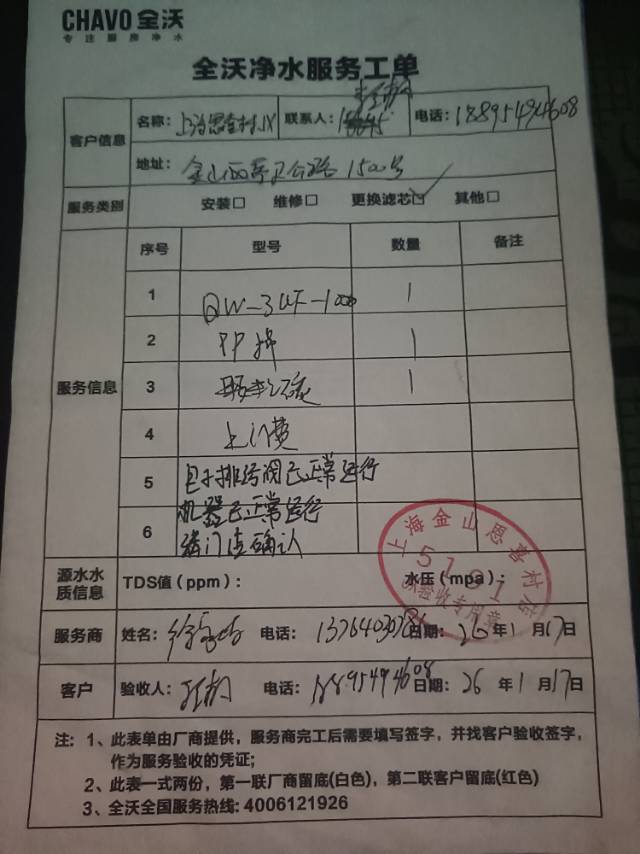 CHAVO 全沃
专注厨房净水
全沃净水服务工单
客户信息 名称: 联系人: 电话: 18895494608
地址: 1500号
服务类别 安装□ 维修□ 更换滤芯☑ 其他□
服务信息 序号 型号 数量 备注
1 QW-3UF-1000 1
2 PP棉 1
3 1
4 上门费
5 电子排污阀已正常运行
机器已正常运行
6 请门店确认
上海金山恩喜村店
5191
验收专用章
源水水质信息 TDS值(ppm): 水压(mpa):
服务商 姓名: 电话: 日期: 26年1月17日
客户 验收人: 电话: 18895494608 日期: 26年1月17日
注: 1、此表单由厂商提供，服务商完工后需要填写签字，并找客户验收签字，
作为服务验收的凭证;
2、此表一式两份，第一联厂商留底(白色)，第二联客户留底(红色)
3、全沃全国服务热线: 4006121926